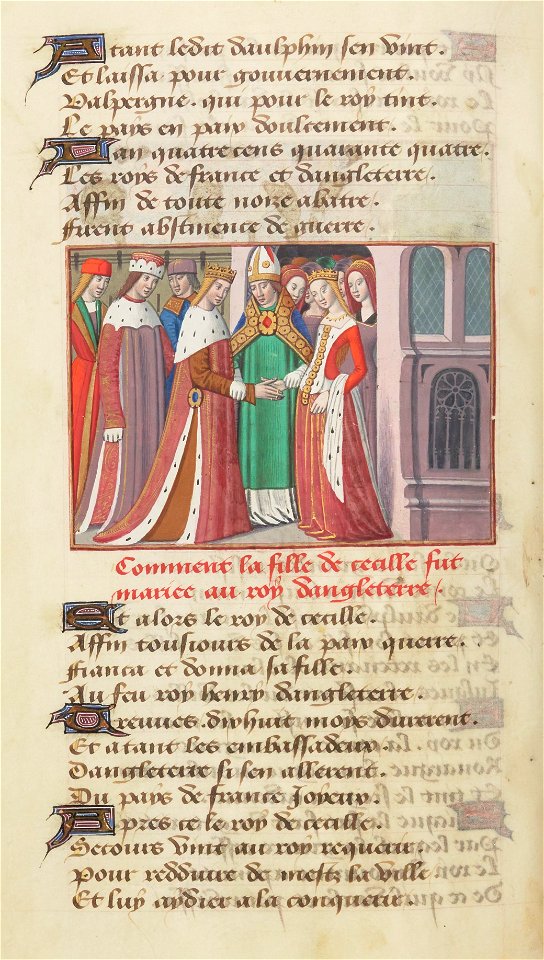 Atant ledit daulphin sen vint.
Et laissa pour gouvernement.
Valpergue. qui pour le roy tint.
Le pays en paix doulcement.
Lan quatre cens quarante quatre.
Les roys de france et dangleterre.
Affin de toute noize abatre.
Firent abstinence de guerre.
Comment la fille de cecille fut
mariee au roy dangleterre.
Et alors le roy de cecille.
Affin tousiours de la paix querre.
Fianca et donna sa fille.
Au feu roy henry dangleterre.
Treuves. dixhuit moys durerent.
Et atant les embassadeux.
Dangleterre si sen allerent.
Du pays de france Joyeux.
Apres ce le roy de cecille.
Secours vint au roy requerir.
Pour redduire de metz la ville
Et luy aydier a la conquerir.